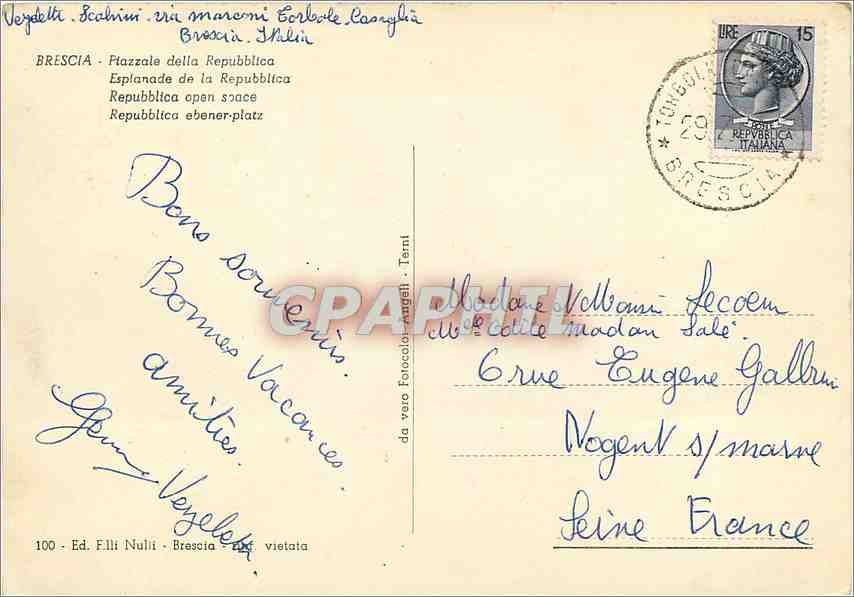 Scalvini. via marconi Torbole Casaglia
Brescia. Italia
BRESCIA - Piazzale della Repubblica
Esplanade de la Repubblica
Repubblica open space
Repubblica ebener-platz
LIRE 15
POSTE
REPVBBLICA
ITALIANA
29
* BRESCIA *
Bons souvenirs.
Bonnes Vacances.
amitiés.
da vero Fotocolor Angeli - Terni
CPAPHIL
Madame
6 rue Eugene
Nogent s/marne
Seine France
100 - Ed. F.lli Nulli - Brescia - vietata